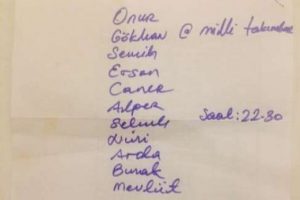 Onur
Gökhan @ milli takımdan
Semih
Ersan
Caner
Alper
Selçuk Saat: 22.30
Nuri
Arda
Burak
Mevlüt